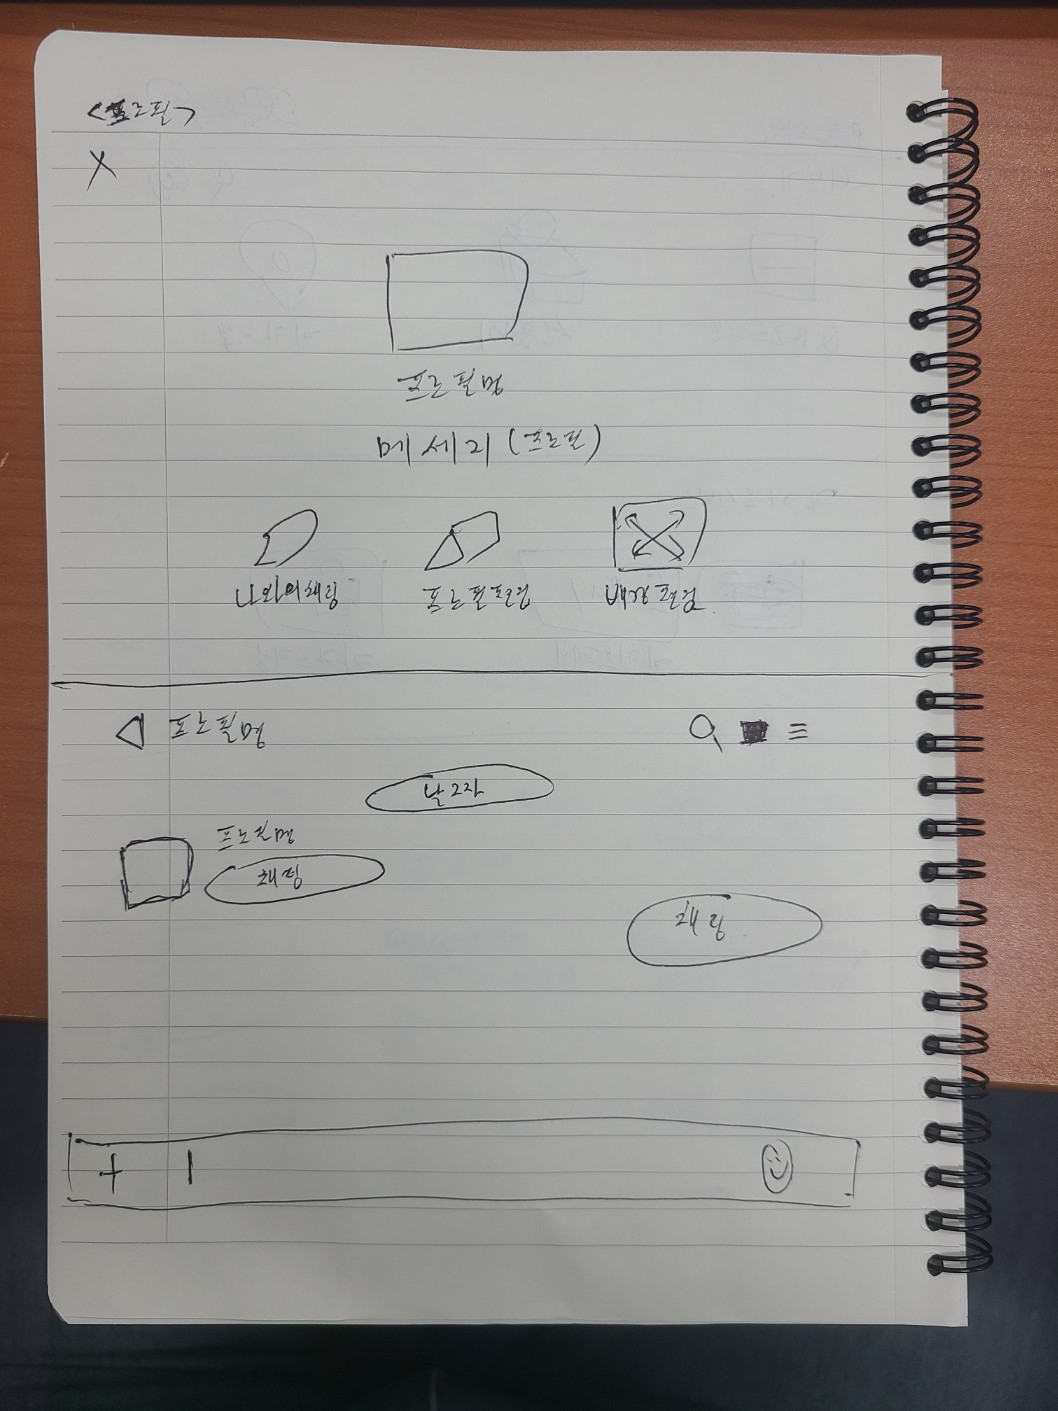 <프로필>
X
프로필명
메세지 (프로필)
나와의채팅 프로필편집 배경편집
프로필명
날짜
프로필명
채팅
채팅
+